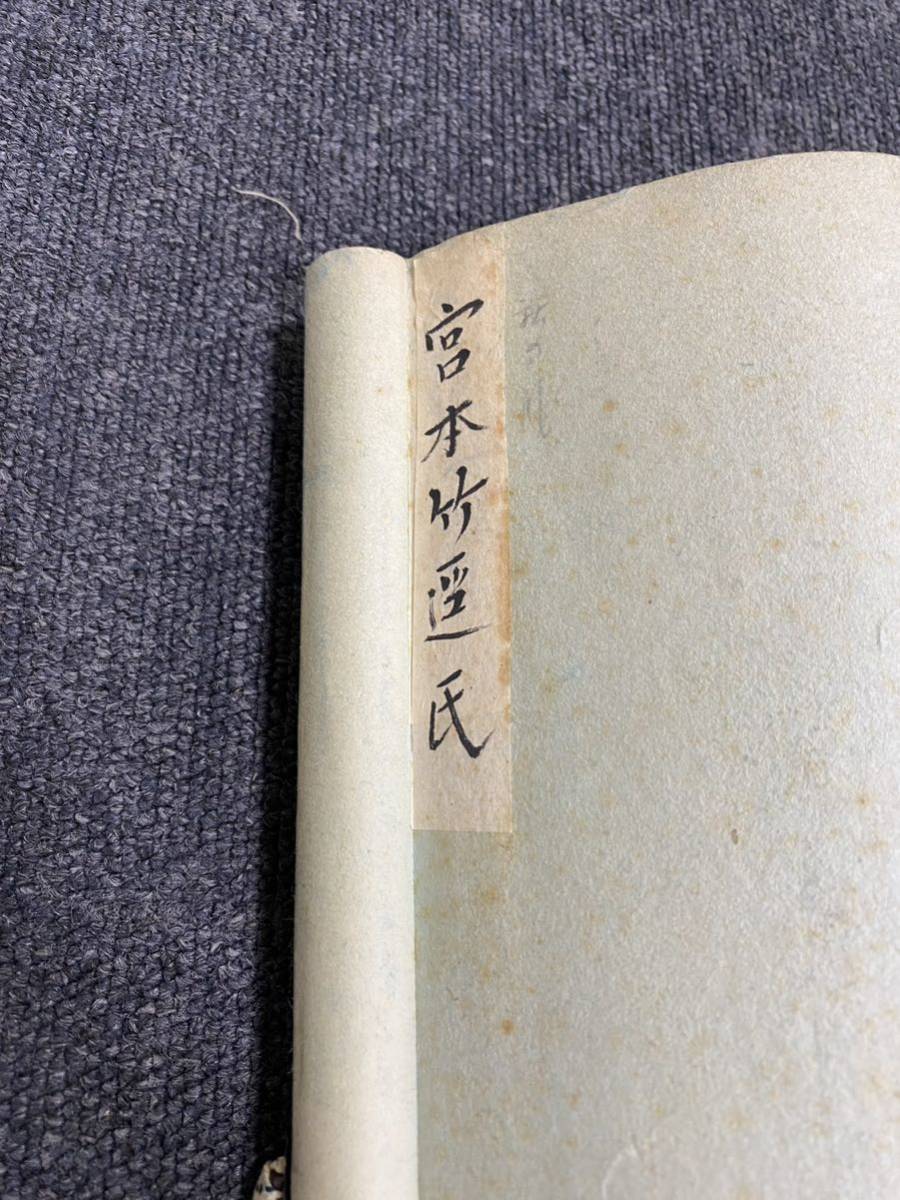 宮本竹逕氏